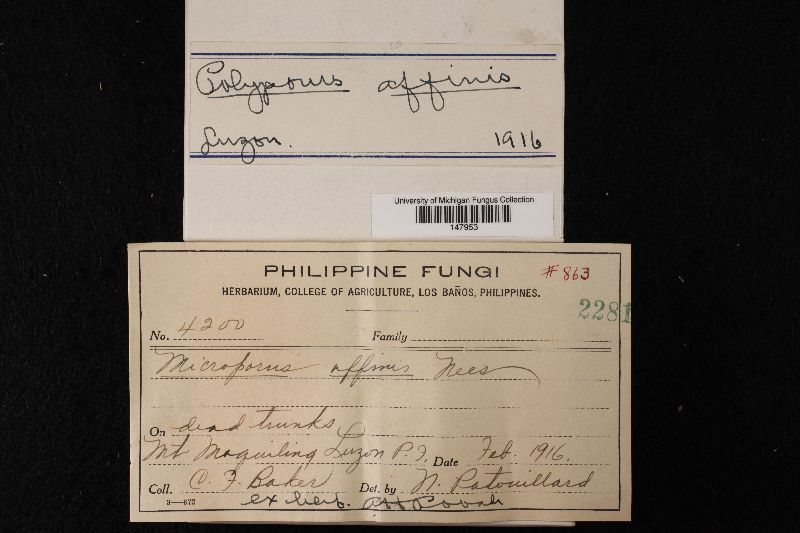 Polyporus affinis
Luzon. 1916
University of Michigan Fungus Collection
147953
PHILIPPINE FUNGI #863
HERBARIUM, COLLEGE OF AGRICULTURE, LOS BAÑOS, PHILIPPINES.
2281
No. 4200 Family
Microporus affinis Nees
On dead trunks
Mt Maquiling Luzon P.I. Date Feb. 1916.
Coll. C. F. Baker Det. by N. Patouillard
3—672 ex herb.